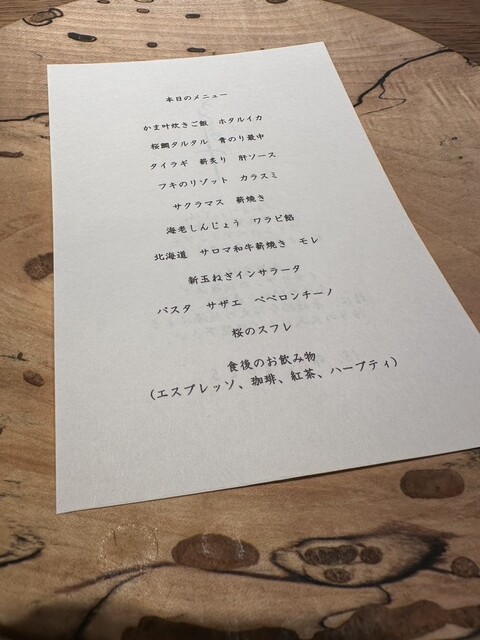 本日のメニュー
かま叶炊きご飯　ホタルイカ
桜鯛タルタル　青のり最中
タイラギ　薪炙り　肝ソース
フキのリゾット　カラスミ
サクラマス　薪焼き
海老しんじょう　ワラビ餡
北海道　サロマ和牛薪焼き　モレ
新玉ねぎインサラータ
パスタ　サザエ　ペペロンチーノ
桜のスフレ
食後のお飲み物
(エスプレッソ、珈琲、紅茶、ハーブティ)